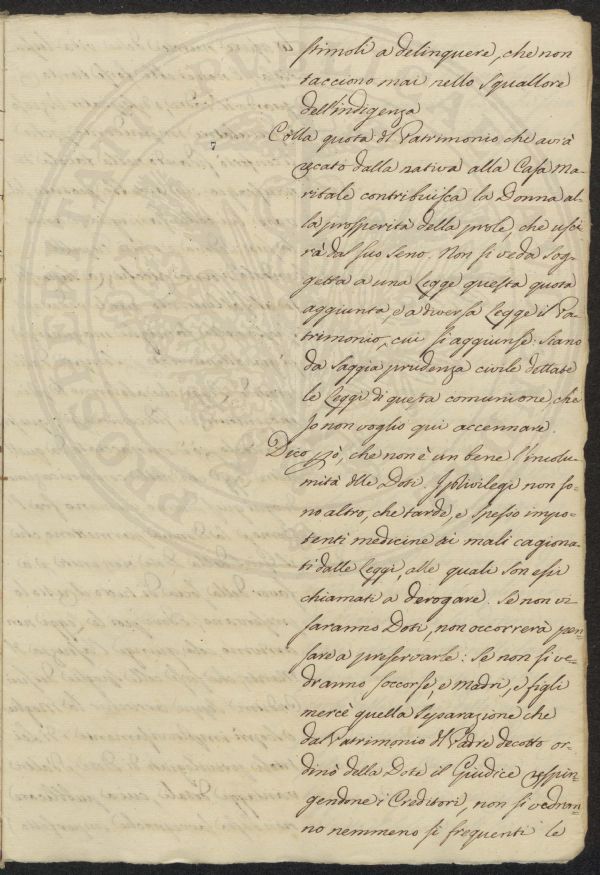 stimoli a delinquere, che non
tacciono mai nello squallore
dell'indigenza
Colla quota di Patrimonio che avrà
recato dalla nativa alla Casa Ma-
ritale contribuisca la Donna al-
la prosperità della prole, che usci-
rà dal suo seno. Non si veda sog-
getta a una Legge questa quota
aggiunta, e a diversa Legge il Pa-
trimonio, cui si aggiunse: siano
da saggia prudenza civile dettate
le Leggi di questa comunione, che
Io non voglio qui accennare.
Dico pò, che non è un bene l'incolu-
mità dlle Doti. I privilegi non so-
no altro, che tarde, e spesso impo-
tenti medicine ai mali cagiona-
ti dalle Leggi, alle quali son essi
chiamati a derogare. Se non vi
saranno Doti, non occorrerà pen-
sare a preservarle: Se non si ve-
dranno soccorse, e Madri, e figli
mercè quella separazione che
dal Patrimonio dl Padre decotto or-
dinò della Dote il Giudice respin-
gendone i Creditori, non si vedran-
no nemmeno sì frequenti le